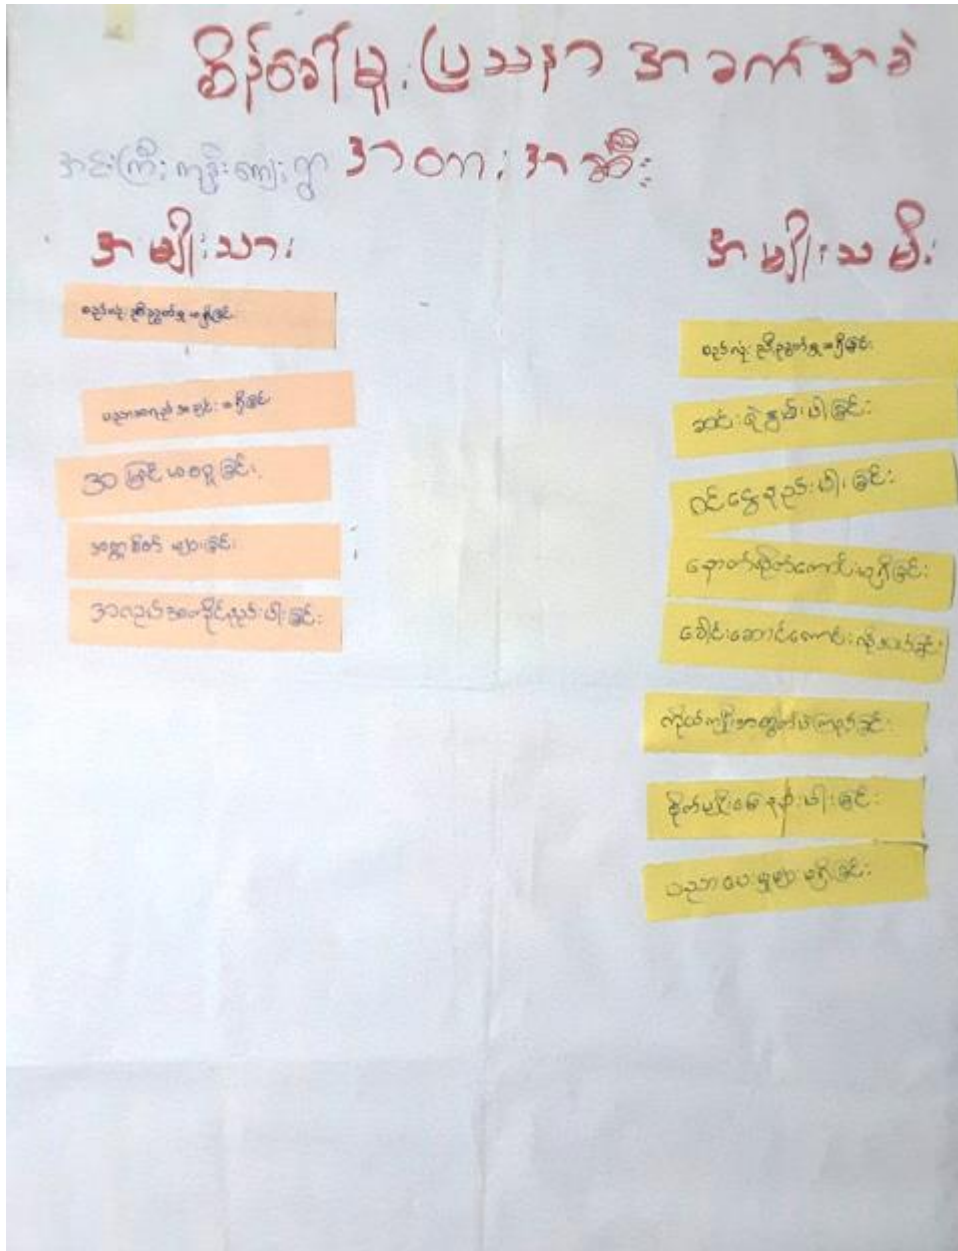 စိန်ခေါ်မှု, ပြဿနာ အခက်အခဲ
အင်းကြီးကုန်းကျေးရွာ အတား, အဆီး
အမျိုးသား
အမျိုးသမီး
စည်းလုံး ညီညွတ်မှု မရှိခြင်း
ပညာအရည်အချင်း မရှိခြင်း
အမြင် မစေ့ခြင်း
အတ္တစိတ် များခြင်း
အလုပ်အကိုင်နည်းပါးခြင်း
စည်းလုံး ညီညွတ်မှု မရှိခြင်း
ဆင်းရဲနွမ်းပါးခြင်း
ဝင်ငွေနည်းပါးခြင်း
နောက်လိုက်ကောင်းမရှိခြင်း
ခေါင်းဆောင်ကောင်းလိုအပ်ခြင်း
ကိုယ်ကျိုးအတွက်ပဲကြည့်ခြင်း
စိုက်ပျိုးမြေနည်းပါးခြင်း
ပညာပေးမှုများ မရှိခြင်း